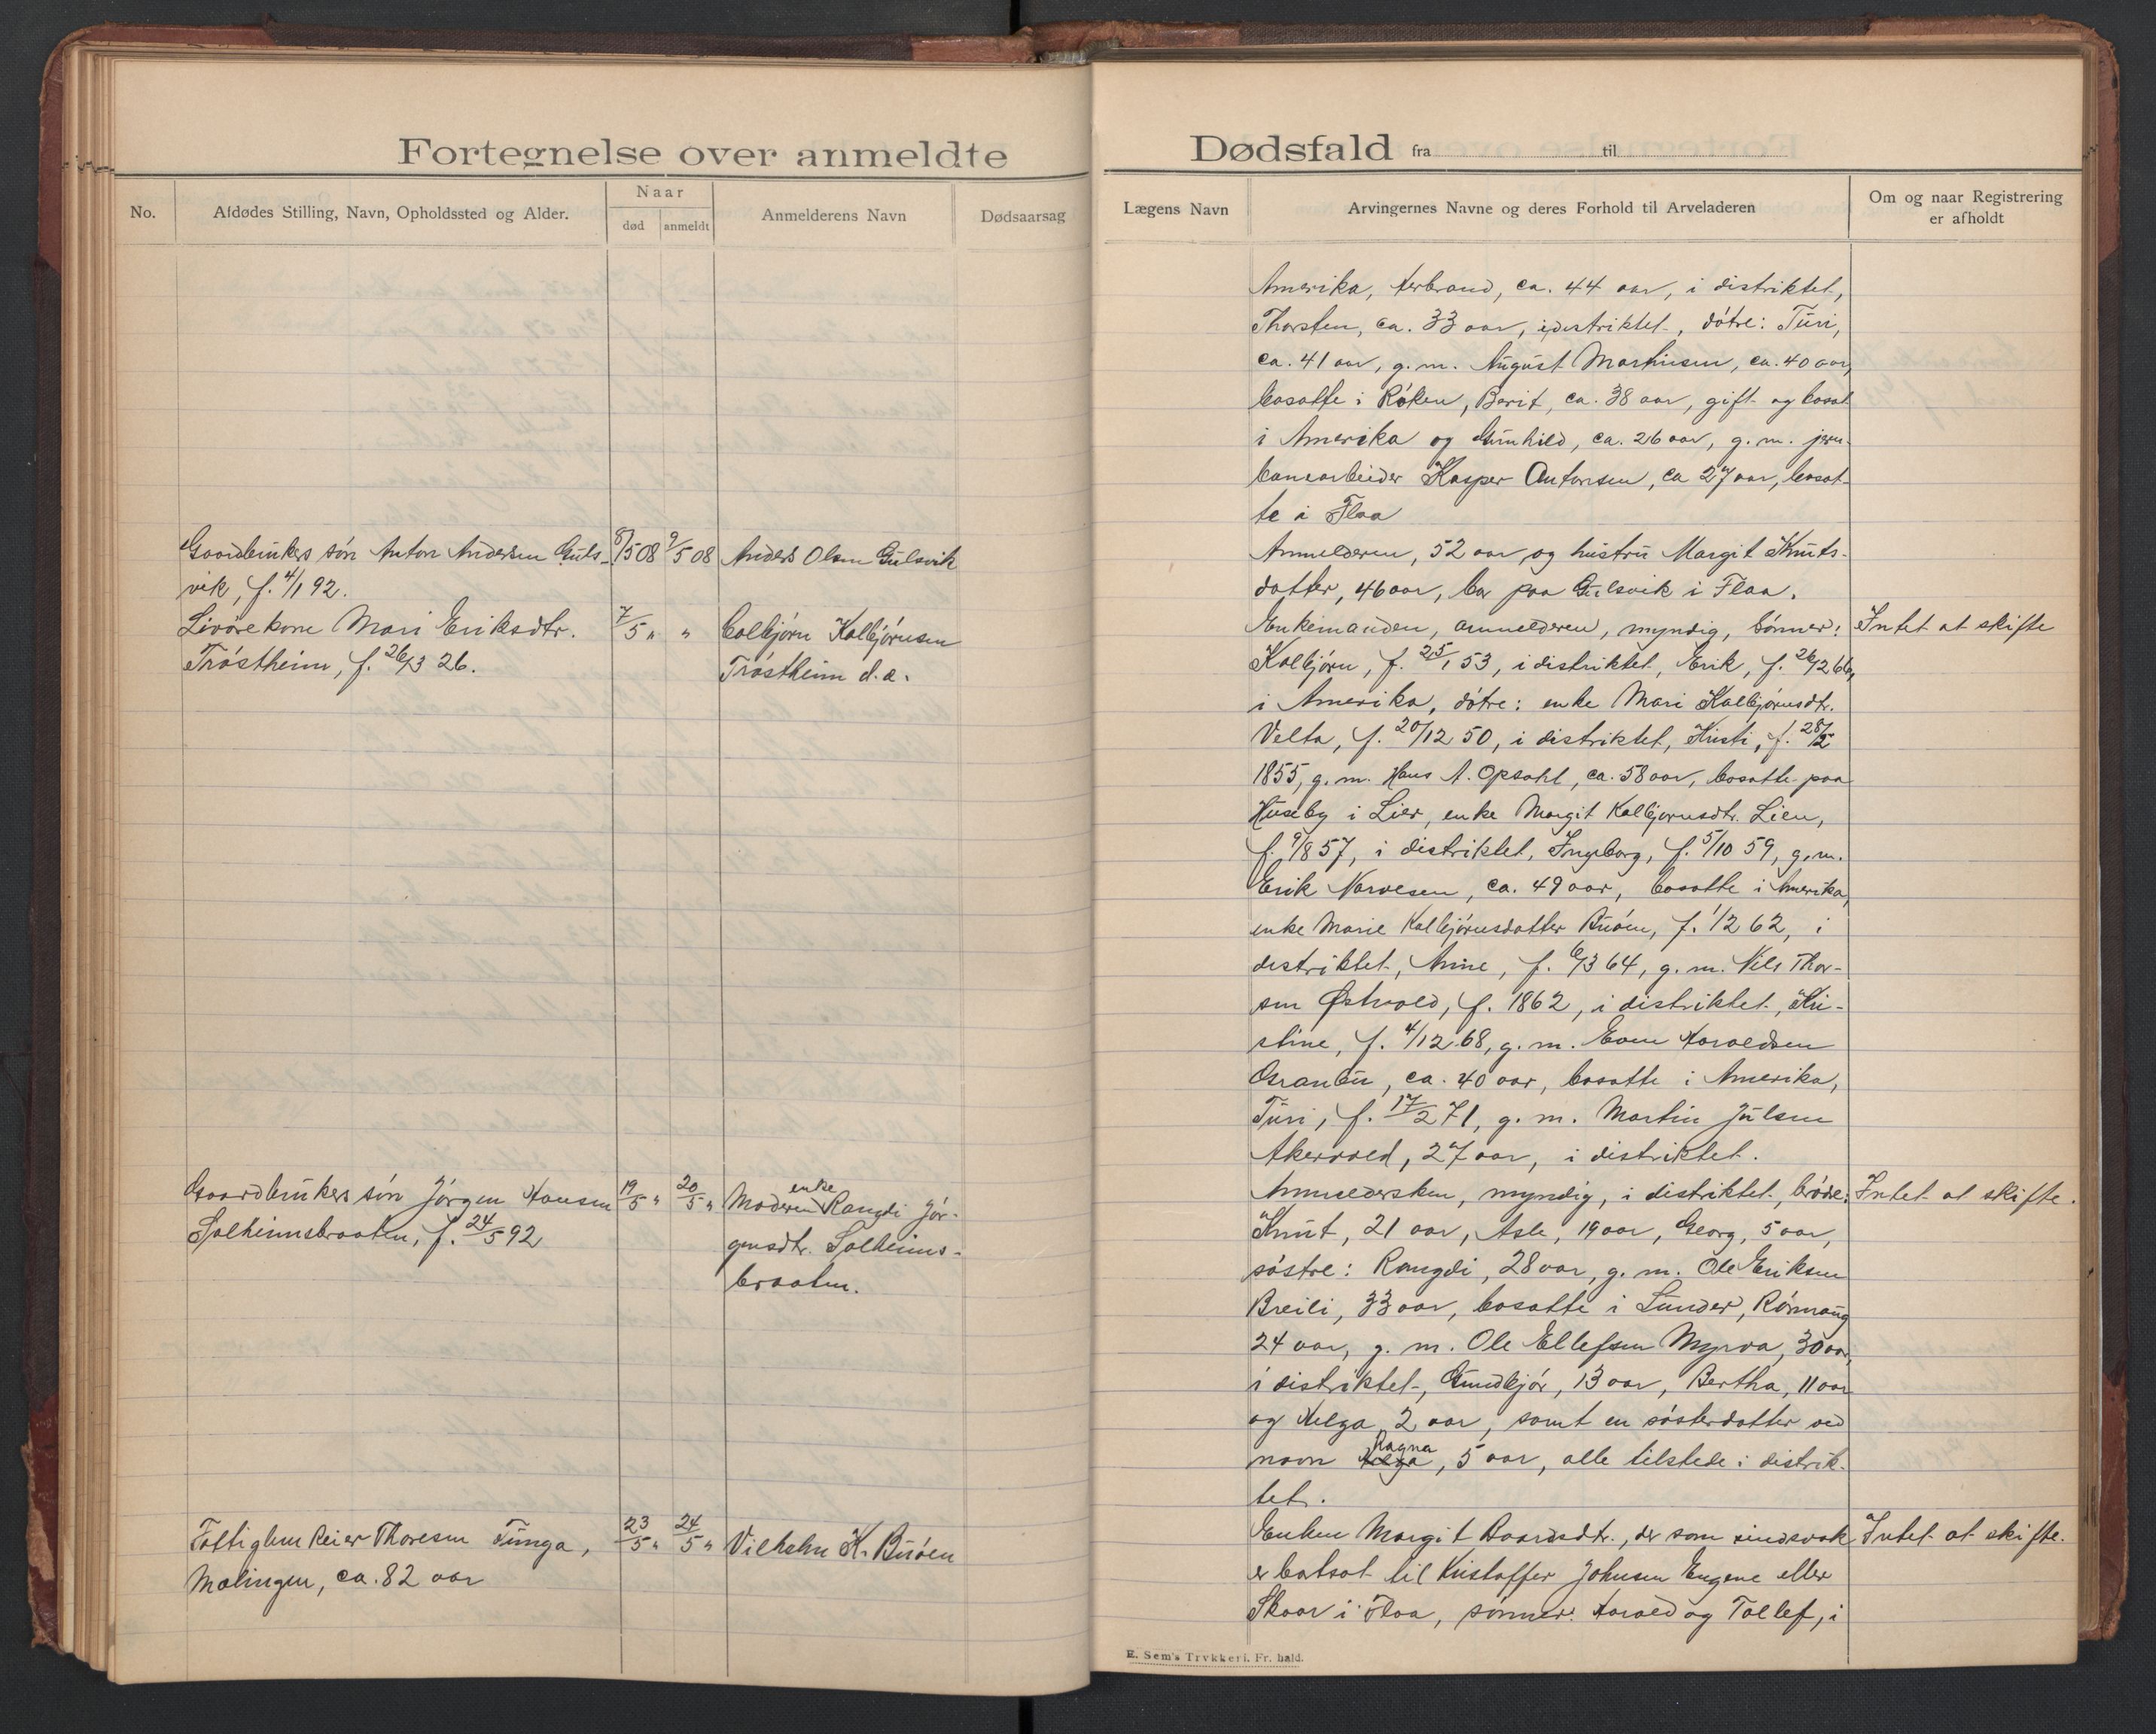 Fortegnelse over anmeldte
No.
Afdødes Stilling, Navn, Opholdssted og Alder.
Naar
død
anmeldt
Anmelderens Navn
Dødsaarsag
Gaardbrukers søn Anton Andersen Guls-
vik, f. 4/1 92.
8/5 08
9/5 08
Anders Olsen Gulsvik
Livørekone Mari Eriksdtr.
Trøstheim, f. 26/3 26.
7/5 "
"
Colbjørn Kolbjørnsen
Trøstheim d.æ.
Gaardbrukers søn Jørgen Hansen
Solheimsbraaten, f. 24/5 92
19/5 "
20/5 "
enke
Moderen Rangdi Jør-
gensdtr. Solheims-
braaten.
Fattiglem Reier Thoresen Tunga,
Mælingen, ca. 82 aar
23/5 "
24/5 "
Vilhelm K. Buøen
Dødsfald fra til
Lægens Navn
Arvingernes Navne og deres Forhold til Arveladeren
Om og naar Registrering
er afholdt
Amerika, Herbrand, ca. 44 aar, i distriktet,
Thorsten, ca. 33 aar, i distriktet, døtre: Turi,
ca. 41 aar, g. m. August Marthinsen, ca. 40 aar,
bosatte i Røken, Berit, ca. 38 aar, gift og bosat
i Amerika og Gunhild, ca. 26 aar, g. m. jern-
banearbeider Kasper Antonsen, ca 27 aar, bosat-
te i Flaa
Anmelderen, 52 aar og hustru Margit Knuts-
datter, 46 aar, bor paa Gulsvik i Flaa.
Enkemanden, anmelderen, myndig, sønner:
Kolbjørn, f. 25/1 53, i distriktet, Erik, f. 26/12 66,
i Amerika, døtre: enke Mari Kolbjørnsdtr.
Velta, f. 20/12 50, i distriktet, Kristi, f. 28/2
1855, g. m. Hans A. Opsahl, ca. 58 aar, bosatte paa
Huseby i Lier, enke Margit Kolbjørnsdtr. Lien,
f. 9/8 57, i distriktet, Ingeborg, f. 5/10 59, g. m.
Erik Narvesen, ca. 49 aar, bosatte i Amerika,
enke Marie Kolbjørnsdatter Buøen, f. 1/2 62, i
distriktet, Anne, f. 6/3 64, g. m. Nils Thor-
sen Østvold, f. 1862, i distriktet, Kri-
stine, f. 4/12 68, g. m. Even Haroldsen
Granbu, ca. 40 aar, bosatte i Amerika,
Turi, f. 17/2 71, g. m. Martin Julsen
Akervold, 27 aar, i distriktet.
Intet at skifte
Anmeldersken, myndig, i distriktet, brødre:
Knut, 21 aar, Asle, 19 aar, Georg, 5 aar,
søstre: Rangdi, 28 aar, g. m. Ole Eriksen
Breili, 33 aar, bosatte i Lunder, Rønnaug
24 aar, g. m. Ole Ellefsen Myrva, 30 aar,
i distriktet, Gundbjør, 13 aar, Bertha, 11 aar
og Helga 2 aar, samt en søsterdatter ved
Ragna
navn Helga, 5 aar, alle tilstede i distrik-
tet.
Intet at skifte.
Enken Margit Baardsdtr., der som sindsvak
er bortsat til Kristoffer Johnsen Engene eller
Skaar i Flaa, sønner: Harald og Tollef, i
Intet at skifte.
E. Sem's Trykkeri. Fr. hald.